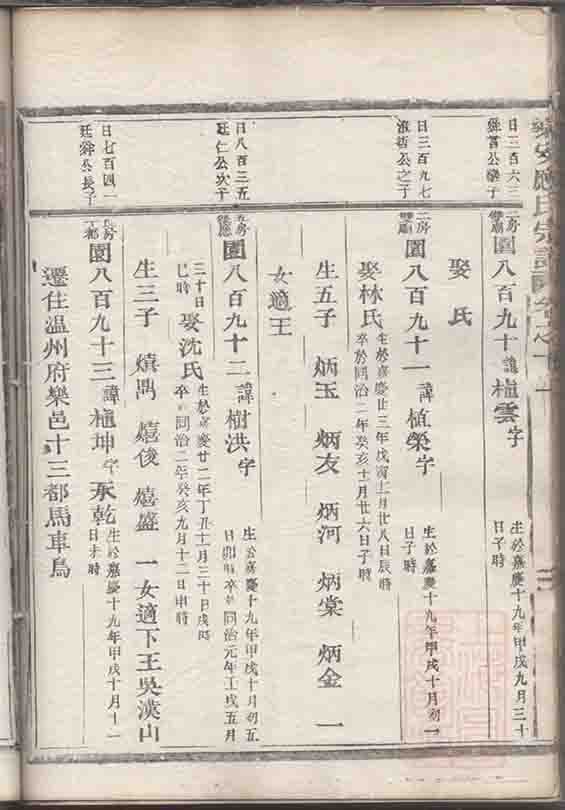 樂安應氏宗譜 卷之
日三百六三
公榮子
二房雙廟 園八百九十 諱植雲 字
生於嘉慶十九年甲戌九月三十
日子時
娶 氏
日三百九七
公之子
二房雙廟 園八百九十一 諱植榮 字
生於嘉慶十九年甲戌十月初一
日子時
娶林氏
生於嘉慶廿三年戊寅十二月廿八日辰時
卒於同治二年癸亥十月廿六日子時
生五子 炳玉 炳友 炳河 炳棠 炳金 一
女適王
日八百三五
廷仁公次子
園八百九十二 諱樹洪 字
生於嘉慶十九年甲戌十月初五
日卯時卒於同治元年壬戌五月
三十日
巳時
娶沈氏
生於嘉慶廿二年丁丑十一月三十日戌時
卒於同治二年癸亥九月十二日申時
生三子 熺禹 熺俊 熺盛 一女適下王吳漢山
日七百四一
廷舜公長子
園八百九十三 諱植坤 字永乾
生於嘉慶十九年甲戌十月十一
日未時
遷住温州府樂邑十三都馬車鳥